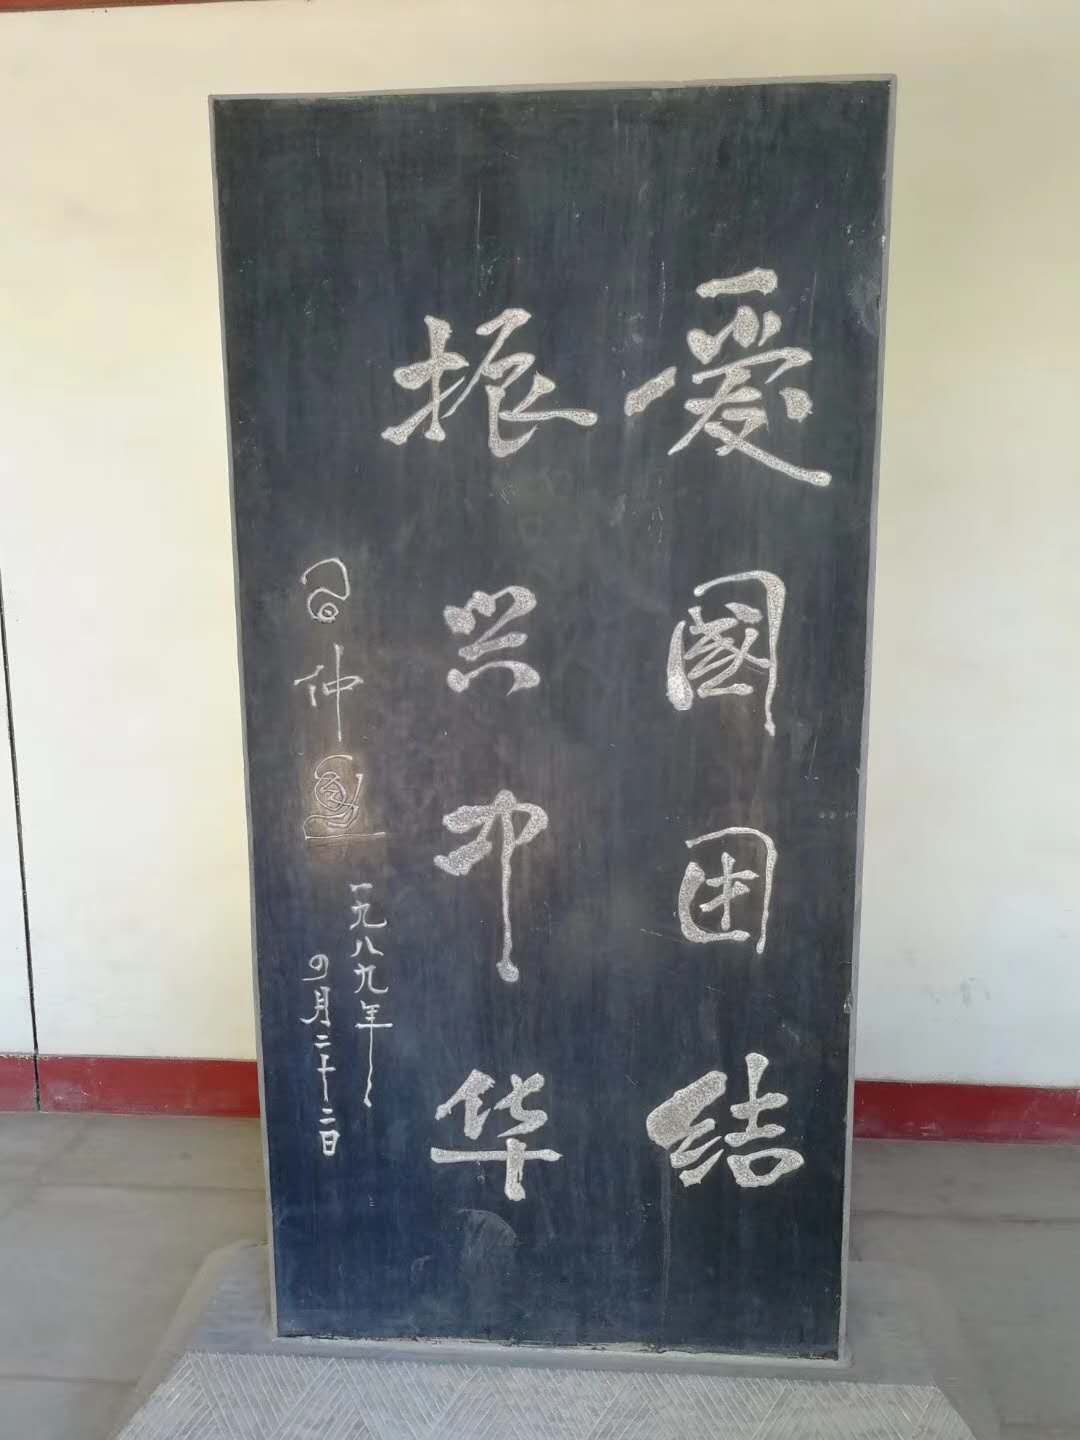 爱國团结
振兴中华
仲
一九八九年
四月二十二日